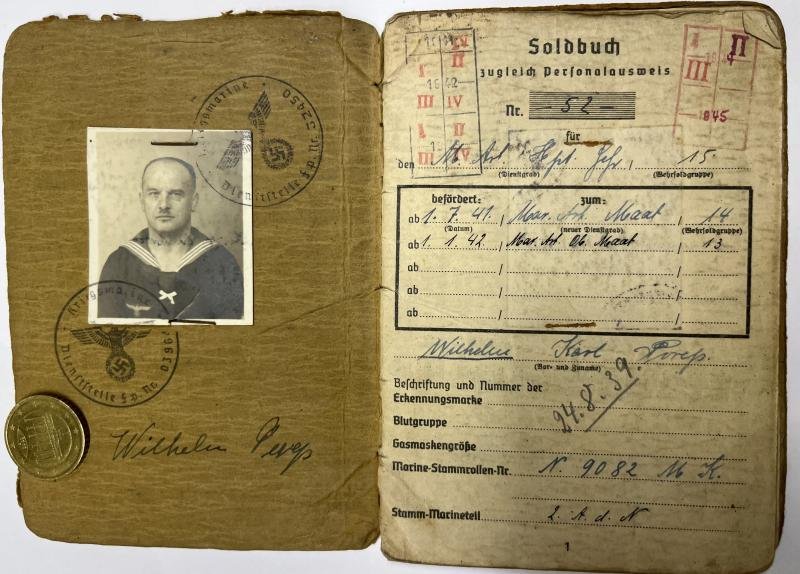 Kriegsmarine
Dienststelle F.P. Nr. 52450
Kriegsmarine
Dienststelle F.P. No
Wilhelm
Soldbuch
zugleich Personalausweis
Nr. - 52 -
für
den M. Art. Hpt. Gefr. / 15
(Dienstgrad) (Wehrsoldgruppe)
befördert: zum:
ab 1. 7. 41. / Mar. Art. Maat / 14
(Datum) (neuer Dienstgrad) (Wehrsoldgruppe)
ab 1. 1. 42. / Mar. Art. Ob. Maat / 13
ab
ab
ab
Wilhelm Karl
(Vor- und Zuname)
Beschriftung und Nummer der
Erkennungsmarke
24. 8. 39.
Blutgruppe
Gasmaskengröße
Marine-Stammrollen-Nr. N. 9082 M K.
Stamm-Marineteil 2. A. d. N
1
I II
III
1945
II
I
1942
III IV
I II
III